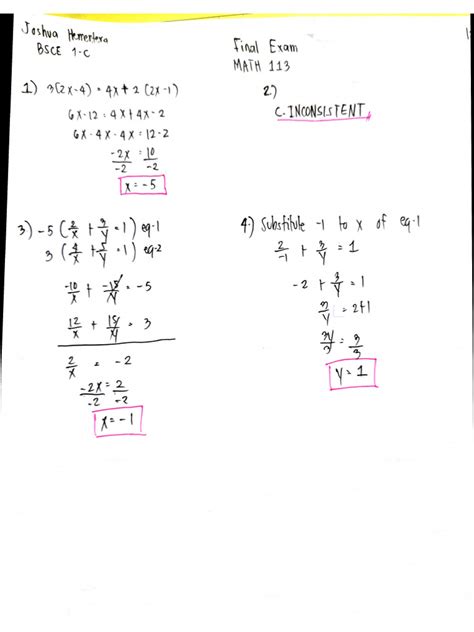 Joshua
BSCE 1-C
Final Exam
MATH 113
1) 3(2x-4) = 4x + 2 (2x-1)
6x-12 = 4x+4x-2
6x-4x-4x = 12-2
-2x/-2 = 10/-2
x = -5
2.)
C. INCONSISTENT
3) -5 (2/x + 3/y = 1) eq-1
3 (4/x + 5/y = 1) eq-2
-10/x + -15/y = -5
12/x + 15/y = 3
2/x = -2
-2x/-2 = 2/-2
x = -1
4.) Substitute -1 to x of eq-1
2/-1 + 3/y = 1
-2 + 3/y = 1
3/y = 2+1
3y/3 = 3/3
y = 1